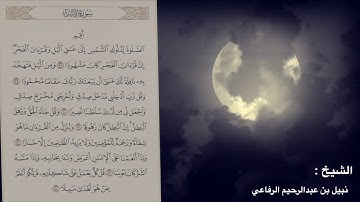 سورة الإسراء
أَقِمِ
الصَّلَاةَ لِدُلُوكِ الشَّمْسِ إِلَىٰ غَسَقِ اللَّيْلِ وَقُرْآنَ الْفَجْرِ
إِنَّ قُرْآنَ الْفَجْرِ كَانَ مَشْهُودًا ۝ وَمِنَ اللَّيْلِ فَتَهَجَّدْ
بِهِ نَافِلَةً لَّكَ عَسَىٰ أَن يَبْعَثَكَ رَبُّكَ مَقَامًا مَّحْمُودًا ۝
وَقُل رَّبِّ أَدْخِلْنِي مُدْخَلَ صِدْقٍ وَأَخْرِجْنِي مُخْرَجَ صِدْقٍ
وَاجْعَل لِّي مِن لَّدُنكَ سُلْطَانًا نَّصِيرًا ۝ وَقُلْ جَاءَ الْحَقُّ وَزَهَقَ
الْبَاطِلُ إِنَّ الْبَاطِلَ كَانَ زَهُوقًا ۝ وَنُنَزِّلُ مِنَ الْقُرْآنِ مَا هُوَ
شِفَاءٌ وَرَحْمَةٌ لِّلْمُؤْمِنِينَ وَلَا يَزِيدُ الظَّالِمِينَ إِلَّا خَسَارًا ۝
وَإِذَا أَنْعَمْنَا عَلَى الْإِنسَانِ أَعْرَضَ وَنَأَىٰ بِجَانِبِهِ وَإِذَا مَسَّهُ
الشَّرُّ كَانَ يَئُوسًا ۝ قُلْ كُلٌّ يَعْمَلُ عَلَىٰ شَاكِلَتِهِ فَرَبُّكُمْ أَعْلَمُ
بِمَنْ هُوَ أَهْدَىٰ سَبِيلًا ۝
الشيخ :
نبيل بن عبدالرحيم الرفاعي